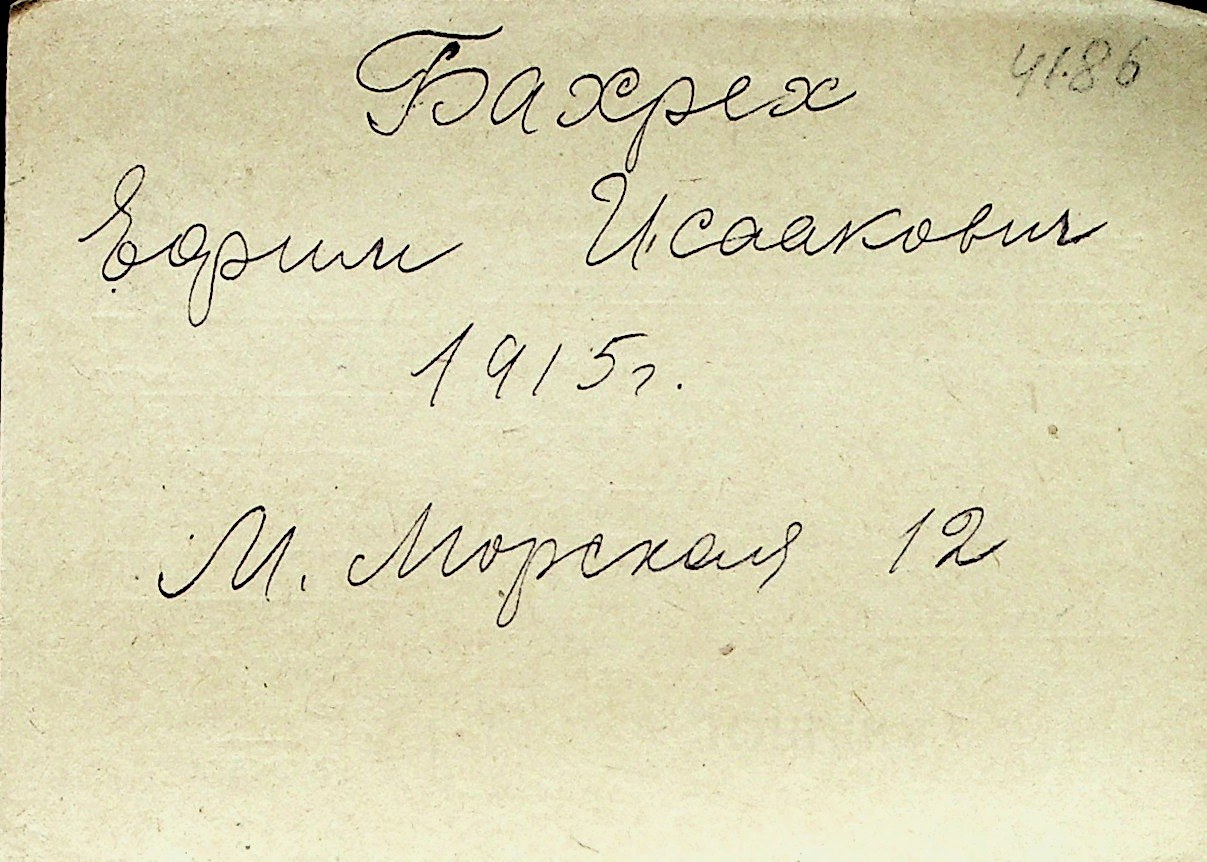 4186
Бахрех
Ефим Исаакович
1915г.
М. Морская 12